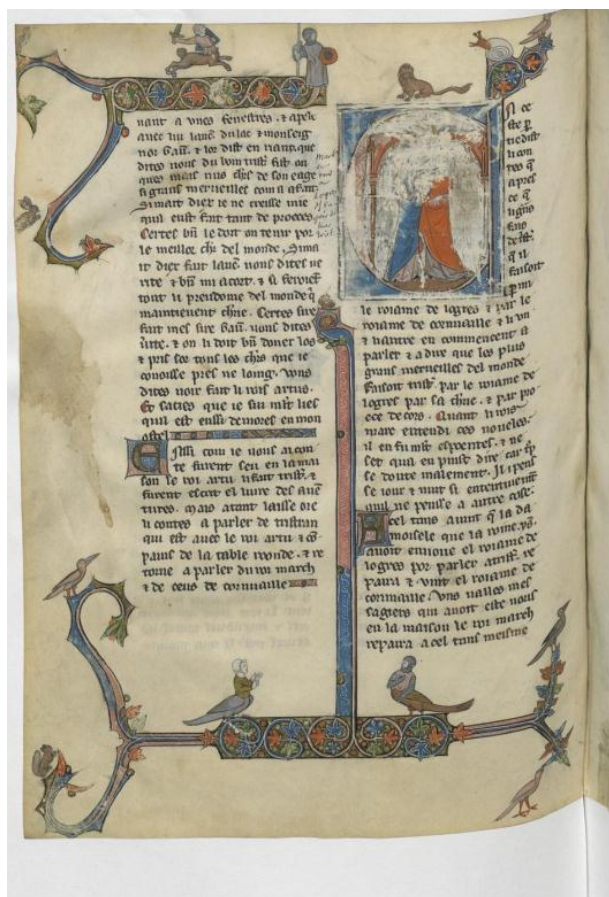 nant a unes fenestres. & apele
avec lui lanc̄ du lac & monseign̄
nor bau͞. & lor dist en riant. que
dites vous du bon trist̃ fist on
ques mais nus chr̄s de son eage
si grans merveilles com a afait
Simait diex ie ne creisse mie
quil eust fait tant de proeces
Certes bn̄ le doit on tenir por
le meillor chr̄ del monde. Sima
it diex fait lanc̄. vous dites ve
rite & bn̄ mi acort. & si feroient
tout li preudome del monde q̄
maintienent chr̄ie. Certes sire
fait mes sire bau͞. vous dites
v̄ite. & on li doit bn̄ doner los
& pris sor tous les chr̄s que ie
conoisse pres ne loing. Vous
dites voir fait li rois artus.
Et sacies que ie sui mlt̄ lies
quil est ensi demores en mon
ostel
Ensi com ie vous ai con
te furent seu en la mai
son le roi artu li fait trist̃. &
furent escrit el livre des aue͞
tures. Mais atant laisse ore
li contes a parler de tristran
qui est avec le roi artu & co͞
pains de la table reonde. & re
torne a parler du roi march
& de ceus de cornuaille
En ce
ste p̱
tie dist
li con
tes q̄
apres
ce q̄
faisoit
le roiame de logres & par le
roiame de cornuaille & li un
& li autre en commencent a
parler & a dire que les plus
grans merveilles del monde
faisoit trist̃. par le roiame de
logres par sa chr̄ie. & par pro
ece de cors. Quant li rois
marc entendi ces noveles.
il en fu mlt̄ espoentes. & ne
set quil en puist dire car tp̄
se doute malement. Il i pense
se ior & nuit si ententivement
quil ne pense a autre cose.
A cel tans avint q̄ la da
moisele que la roine ys̄.
avoit envoie el roiame de
logres por parler a trist̃. re
paira & vint el roiame de
cornuaille. Uns valles mes
sagiers qui avoit este nous
en la maison le roi march
repaira a cel tans meisme